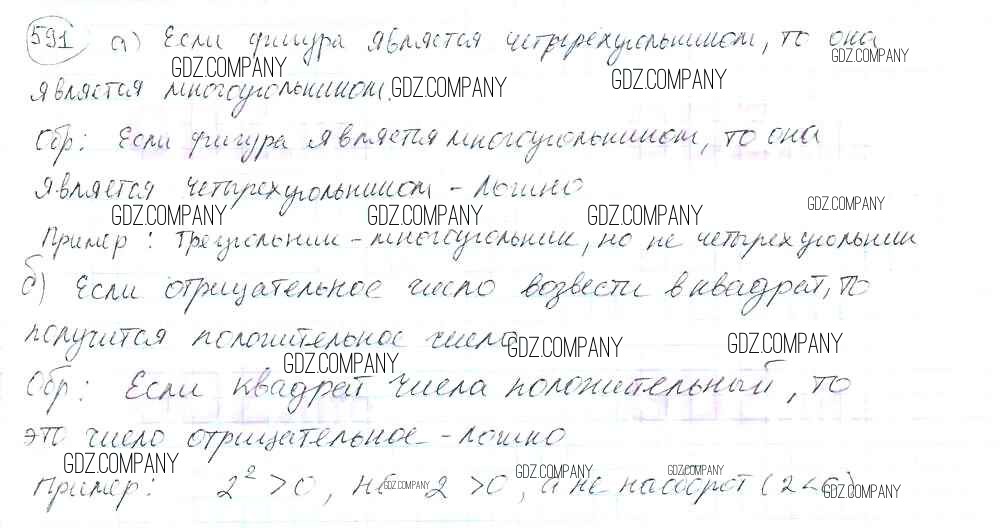 591 а) Если фигура является четырехугольником, то она
GDZ.COMPANY GDZ.COMPANY GDZ.COMPANY
является многоугольником. GDZ.COMPANY
Обр: Если фигура является многоугольником, то она
является четырехугольником - ложно
GDZ.COMPANY GDZ.COMPANY GDZ.COMPANY GDZ.COMPANY
Пример: Треугольник - многоугольник, но не четырехугольник
б) Если отрицательное число возвести в квадрат, то
получится положительное число
GDZ.COMPANY GDZ.COMPANY GDZ.COMPANY
Обр: Если квадрат числа положительный, то
это число отрицательное - ложно
GDZ.COMPANY GDZ.COMPANY GDZ.COMPANY
Пример: 2² > 0, но 2 > 0, а не наоборот (2 < 0)
GDZ.COMPANY GDZ.COMPANY